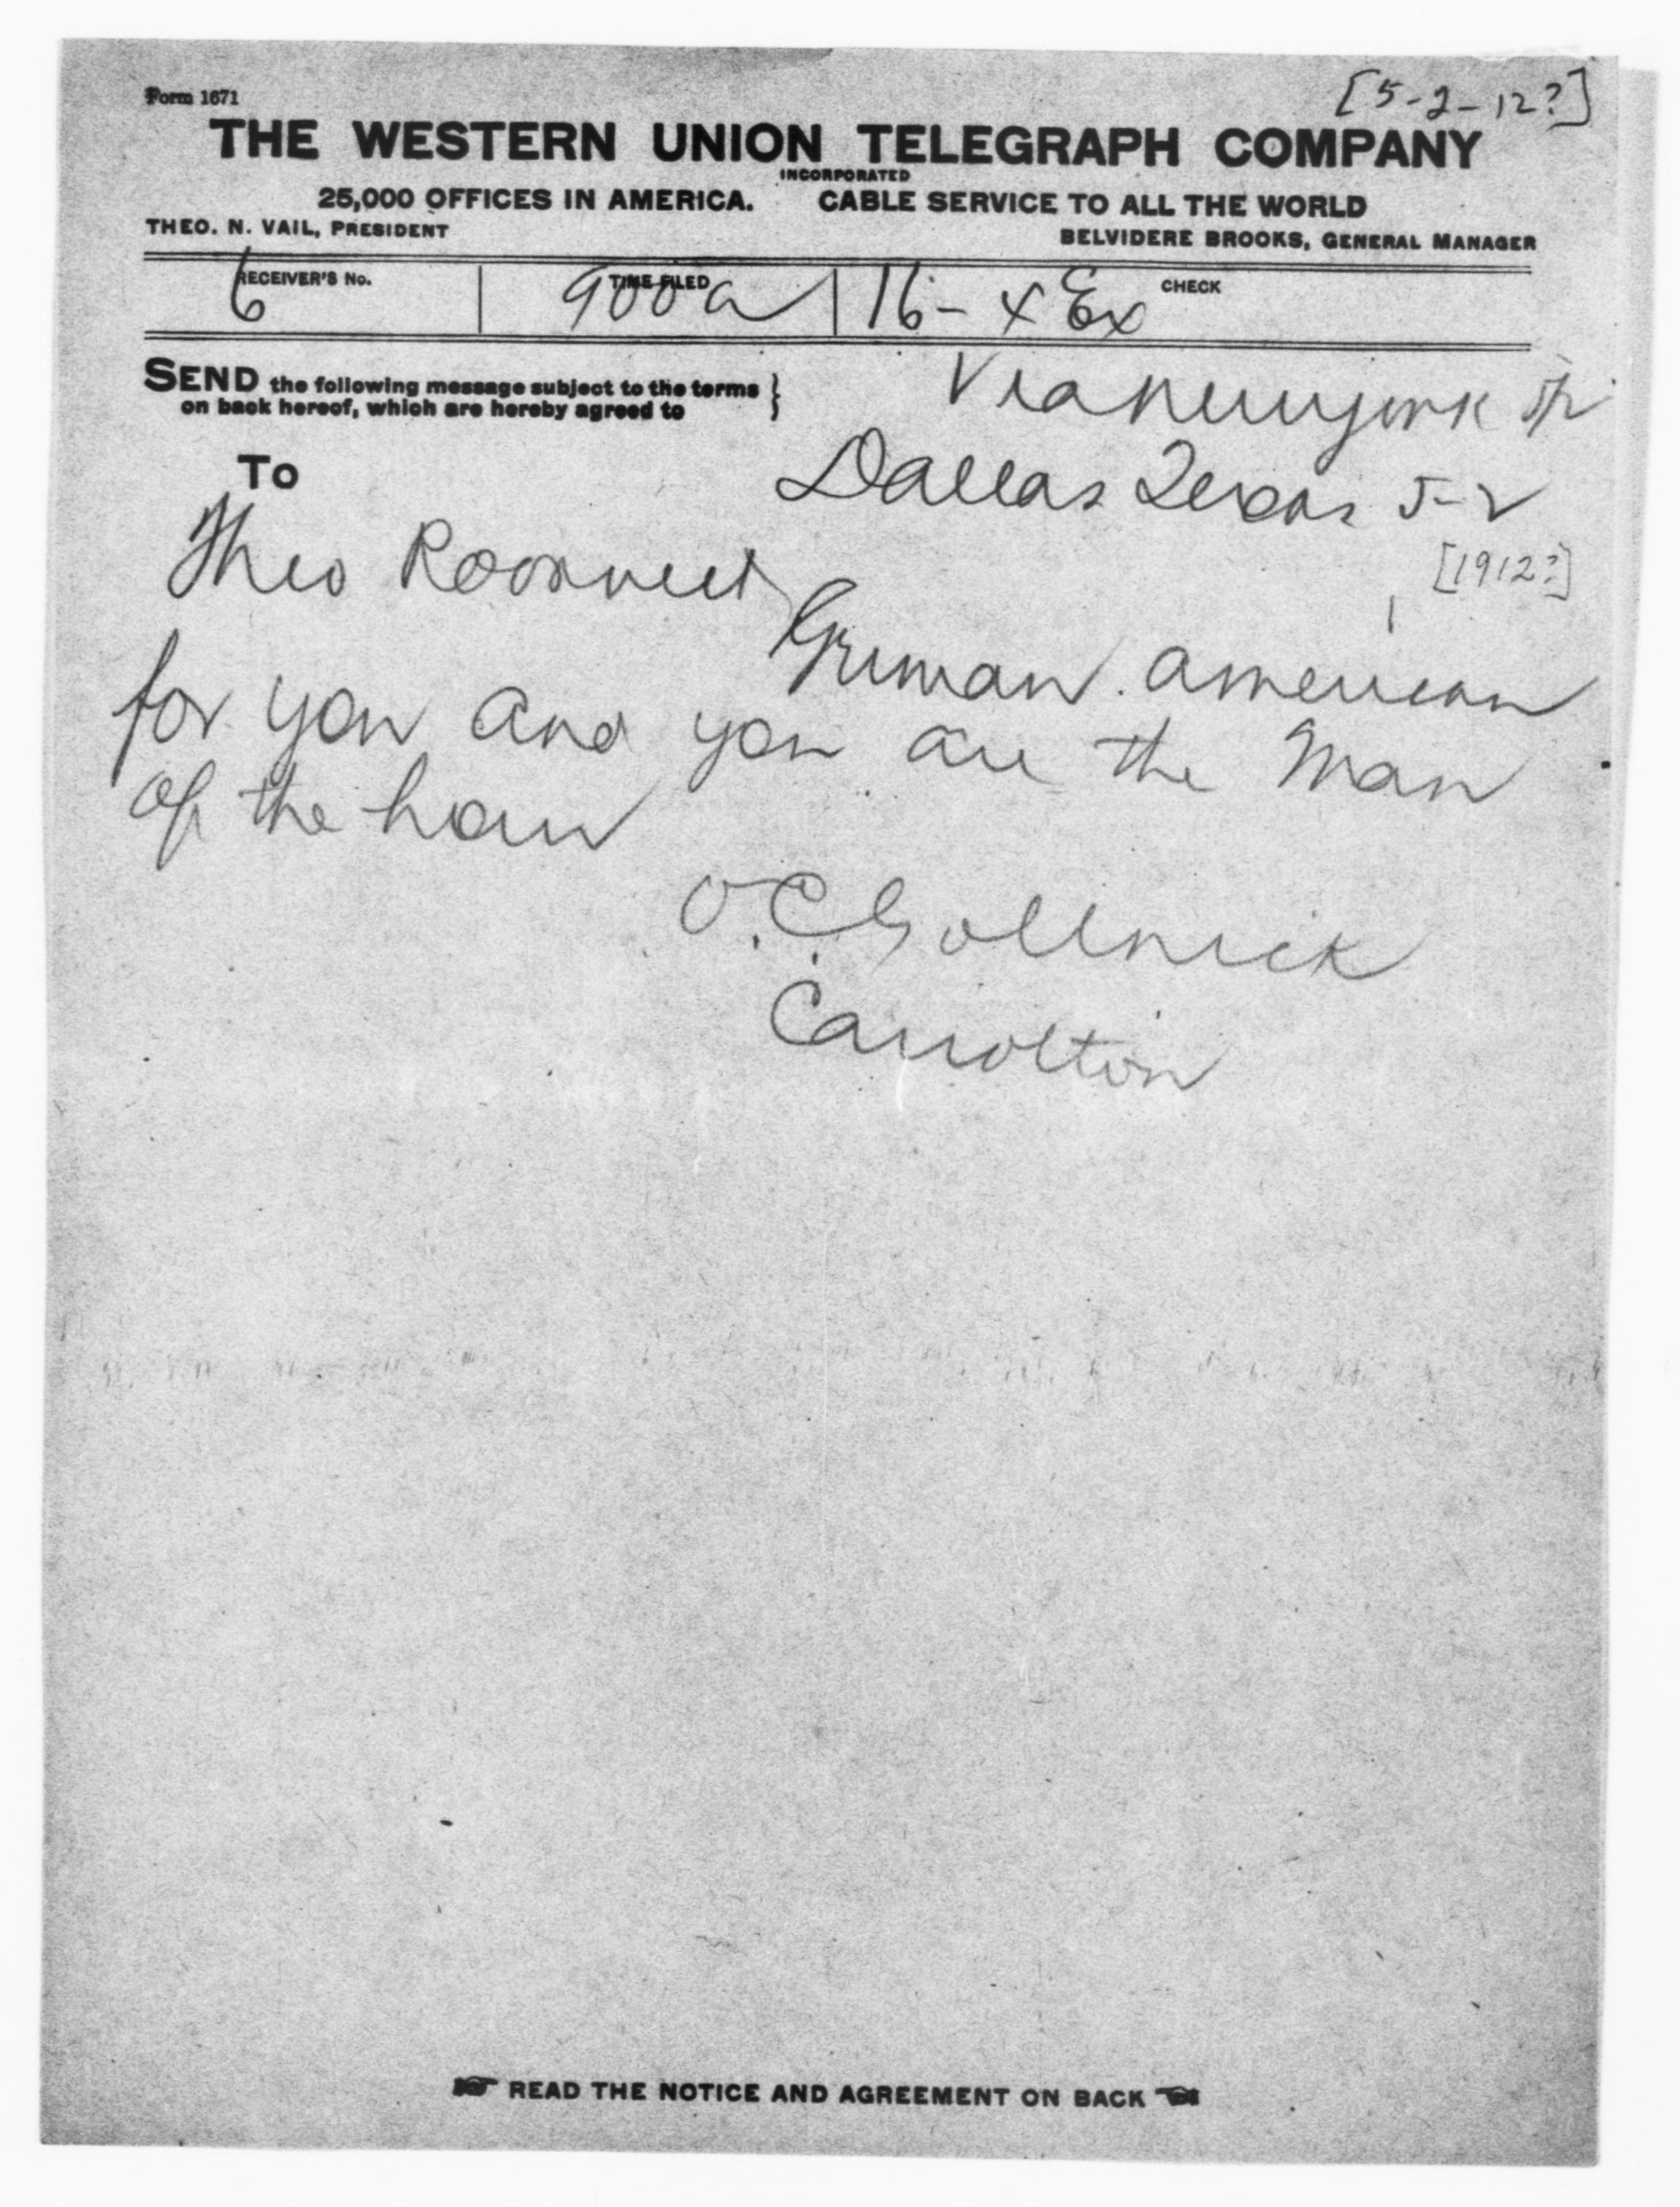 [5-2-12?]
Form 1671
THE WESTERN UNION TELEGRAPH COMPANY
INCORPORATED
25,000 OFFICES IN AMERICA. CABLE SERVICE TO ALL THE WORLD
THEO. N. VAIL, PRESIDENT BELVIDERE BROOKS, GENERAL MANAGER
RECEIVER'S No. TIME FILED CHECK
6 900a 16- 4 Ex
SEND the following message subject to the terms
on back hereof, which are hereby agreed to
Via Newyork
To
Dallas Texas 5-2
[1912?]
Theo Roosevelt
German American
for you and you are the Man
of the hour
O.C. Gollnick
Carrolton
READ THE NOTICE AND AGREEMENT ON BACK